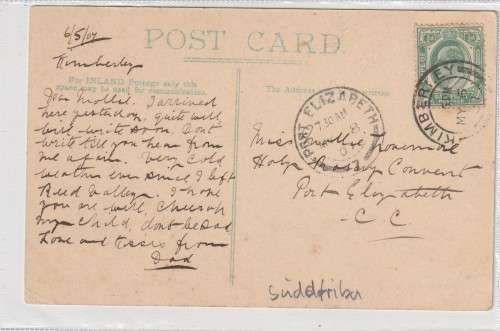 6/5/07
POST CARD.
Kimberley
For INLAND Postage only this
space may be used for communication.
The Address
Dear Mollie. I arrived
here yesterday, quite well,
will write soon. Dont
write till you hear from
me again. Very Cold
weather ever since I left
Reed Valley. I hope
you are well, Cheerish
my Child, dont be Sad
Love and Kisses from
Dad
PORT ELIZABETH
7.30 AM
KIMBERLEY
Miss Mollie
Holy Rosary Convent
Port Elizabeth
C C
Südafrika